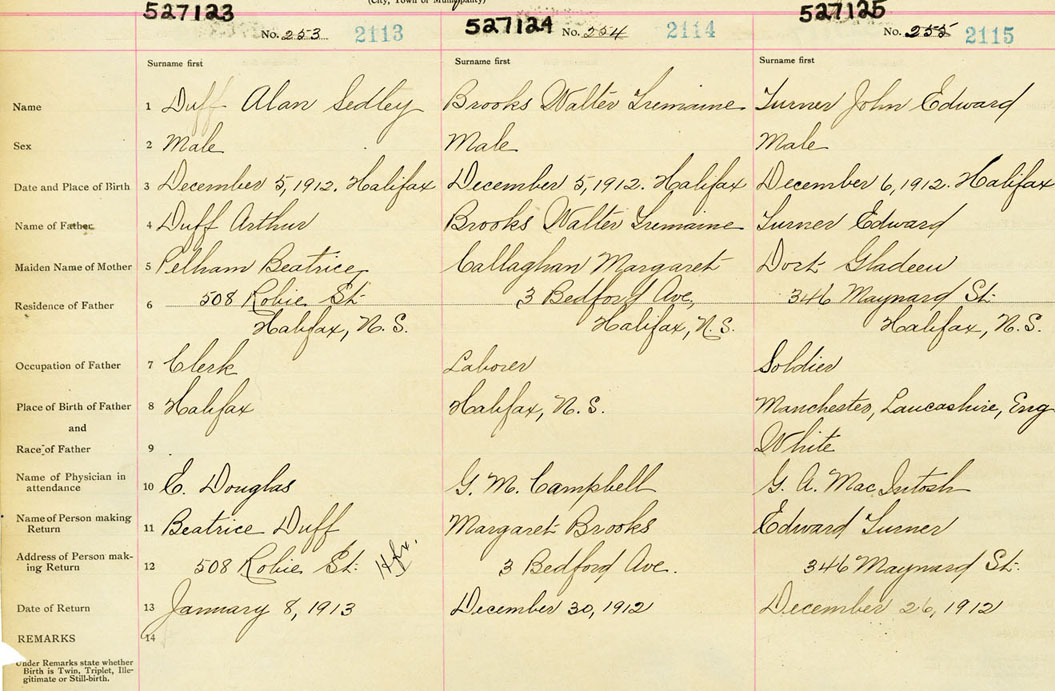 (City, Town or Municipality)
527123 527124 527125
No. 253 2113 No. 254 2114 No. 255 2115
Surname first Surname first Surname first
Name 1 Duff Alan Sedley Brooks Walter Tremaine Turner John Edward
Sex 2 Male Male Male
Date and Place of Birth 3 December 5, 1912. Halifax December 5, 1912. Halifax December 6, 1912. Halifax
Name of Father 4 Duff Arthur Brooks Walter Tremaine Turner Edward
Maiden Name of Mother 5 Pelham Beatrice Callaghan Margaret Dort Gladeen
Residence of Father 6 508 Robie St. 3 Bedford Ave, 346 Maynard St.
Halifax, N.S. Halifax, N.S. Halifax, N.S.
Occupation of Father 7 Clerk Laborer Soldier
Place of Birth of Father 8 Halifax Halifax, N.S. Manchester, Lancashire, Eng
and
Race of Father 9 White
Name of Physician in
attendance 10 E. Douglas G. M. Campbell G. A. MacIntosh
Name of Person making
Return 11 Beatrice Duff Margaret Brooks Edward Turner
Address of Person mak-
ing Return 12 508 Robie St. Hfx. 3 Bedford Ave. 346 Maynard St.
Date of Return 13 January 8, 1913 December 30, 1912 December 26, 1912
REMARKS 14
Under Remarks state whether
Birth is Twin, Triplet, Ille-
gitimate or Still-birth.